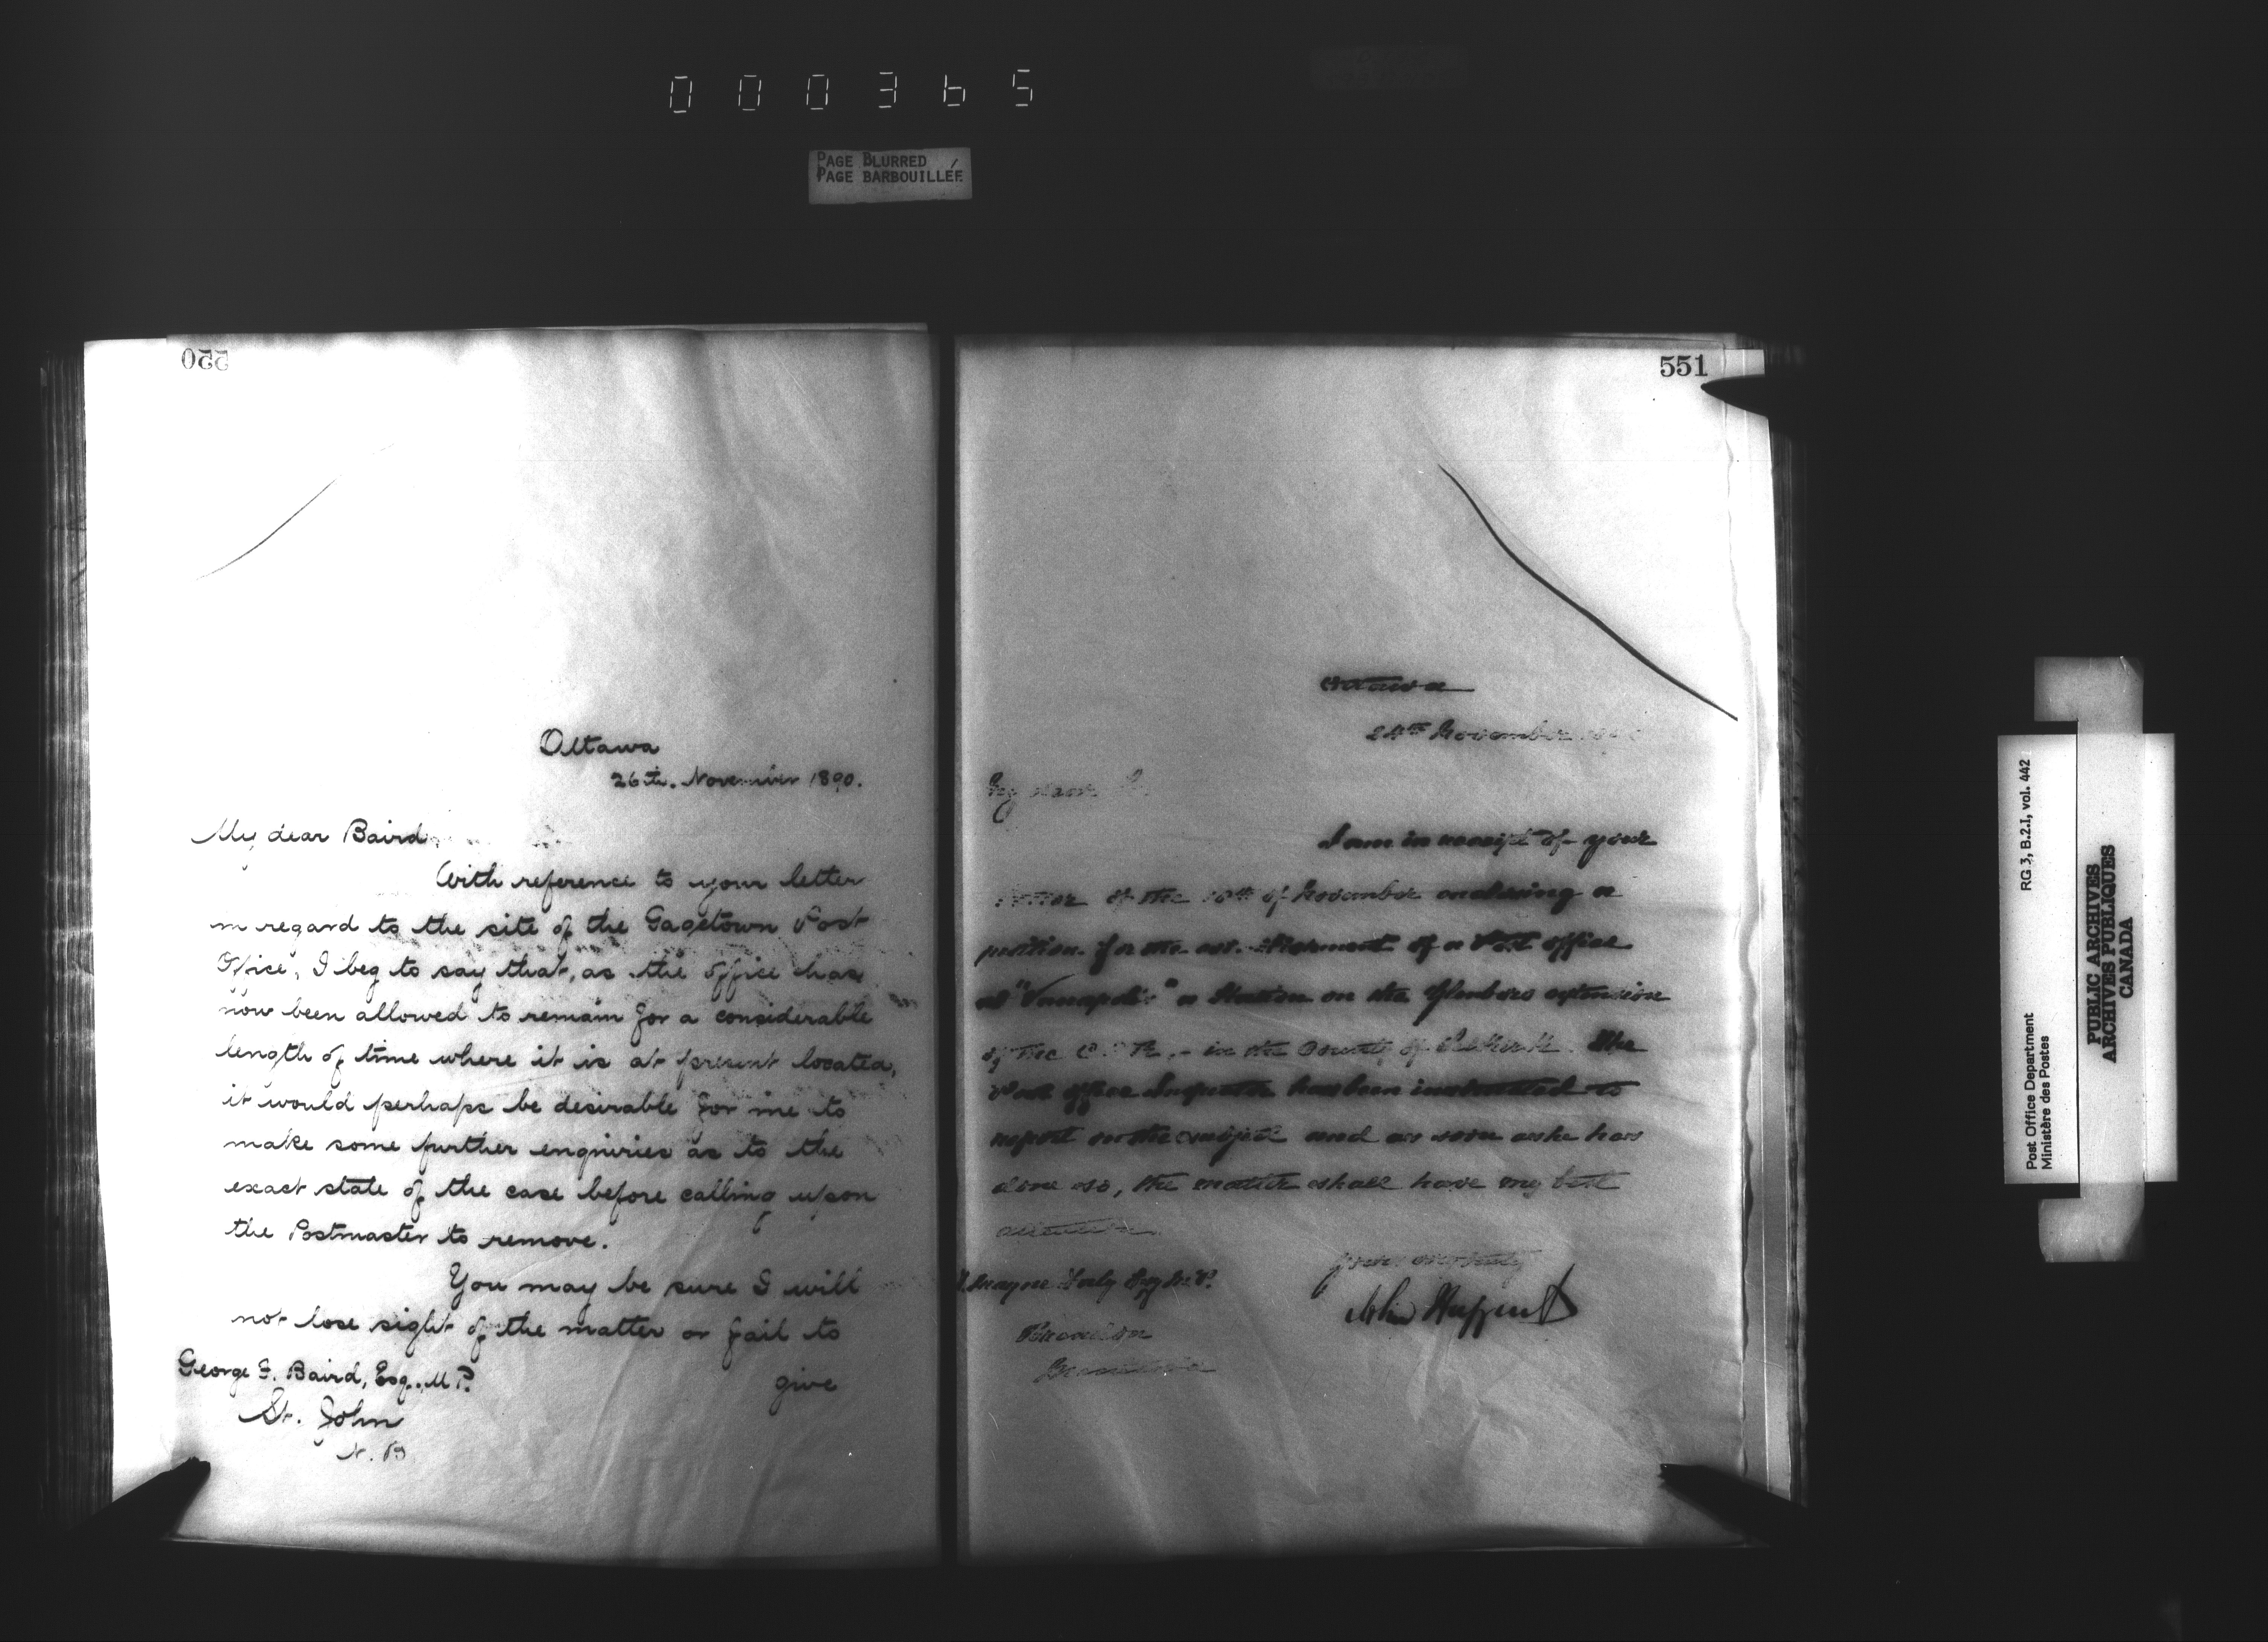 000365
PAGE BLURRED
PAGE BARBOUILLÉE
550
Ottawa
26th. November 1890.
My dear Baird
With reference to your letter
in regard to the site of the Gagetown Post
Office, I beg to say that, as the office has
now been allowed to remain for a considerable
length of time where it is at present located,
it would perhaps be desirable for me to
make some further enquiries as to the
exact state of the case before calling upon
the Postmaster to remove.
You may be sure I will
not lose sight of the matter or fail to
give
George F. Baird, Esq., M.P.
St. John
N.B.
551
Ottawa
24th November
My dear
I am in receipt of your
letter of the of November enclosing a
petition for the establishment of a Post office
at a Station on the extension
of the C.P.R. - in the County of Selkirk. The
Post office Inspector has been instructed to
report on the subject and as soon as he has
done so, the matter shall have my best
attention.
Yours very truly
John Haggart
Daly Esq M.P.
Brandon
Manitoba
Post Office Department
Ministère des Postes
RG 3, B.2.I, vol. 442
PUBLIC ARCHIVES
ARCHIVES PUBLIQUES
CANADA